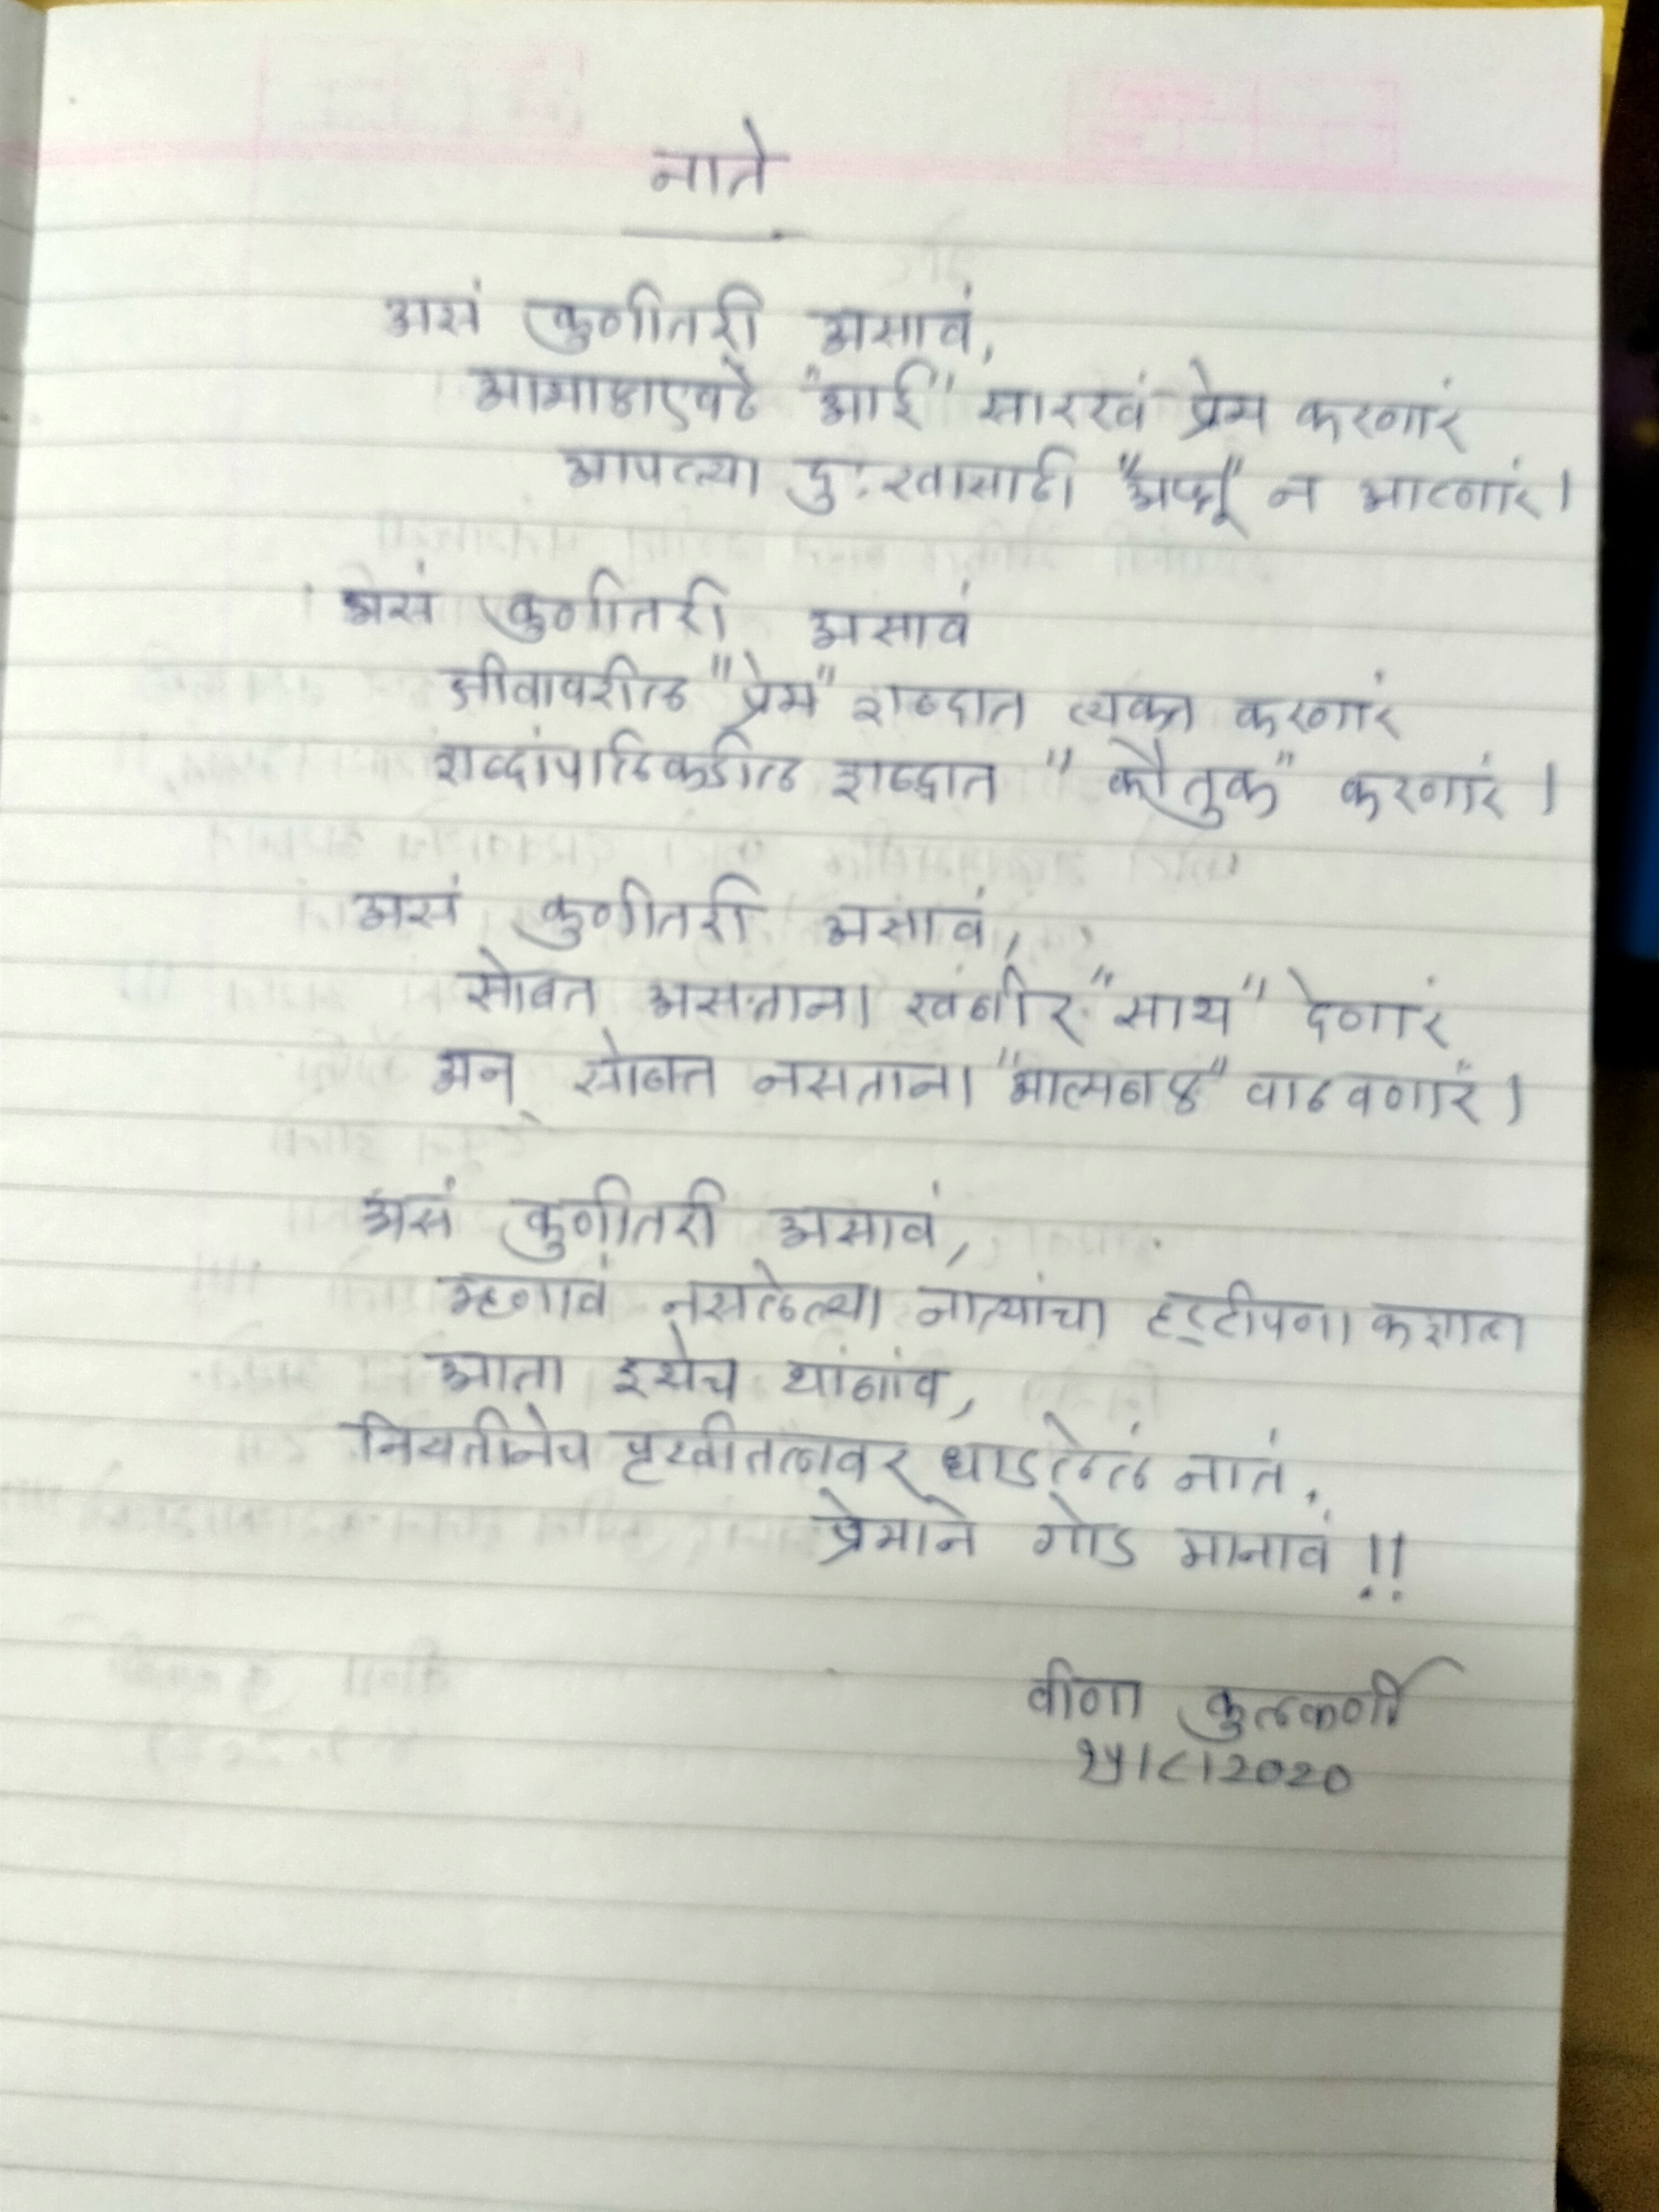 नाते
असं कुणीतरी असावं,
आभाळाएवढे "आई" सारखं प्रेम करणारं
आपल्या दुःखासाठी "अश्रू" न आटणारं।
असं कुणीतरी असावं
जीवावरील "प्रेम" शब्दात व्यक्त करणारं
शब्दांपालिकडील शब्दात "कौतुक" करणारं।
असं कुणीतरी असावं,
सोबत असताना खंबीर "साथ" देणारं
अन् सोबत नसताना "आत्मबळ" वाढवणारं।
असं कुणीतरी असावं,
म्हणावं नसलेल्या नात्यांचा हट्टीपणा कशाला
आता इथेच थांबांव,
नियतीनेच पृथ्वीतलावर धाडलेलं नातं,
प्रेमाने गोड मानावं !!
वीणा कुलकर्णी
१५/८/2020